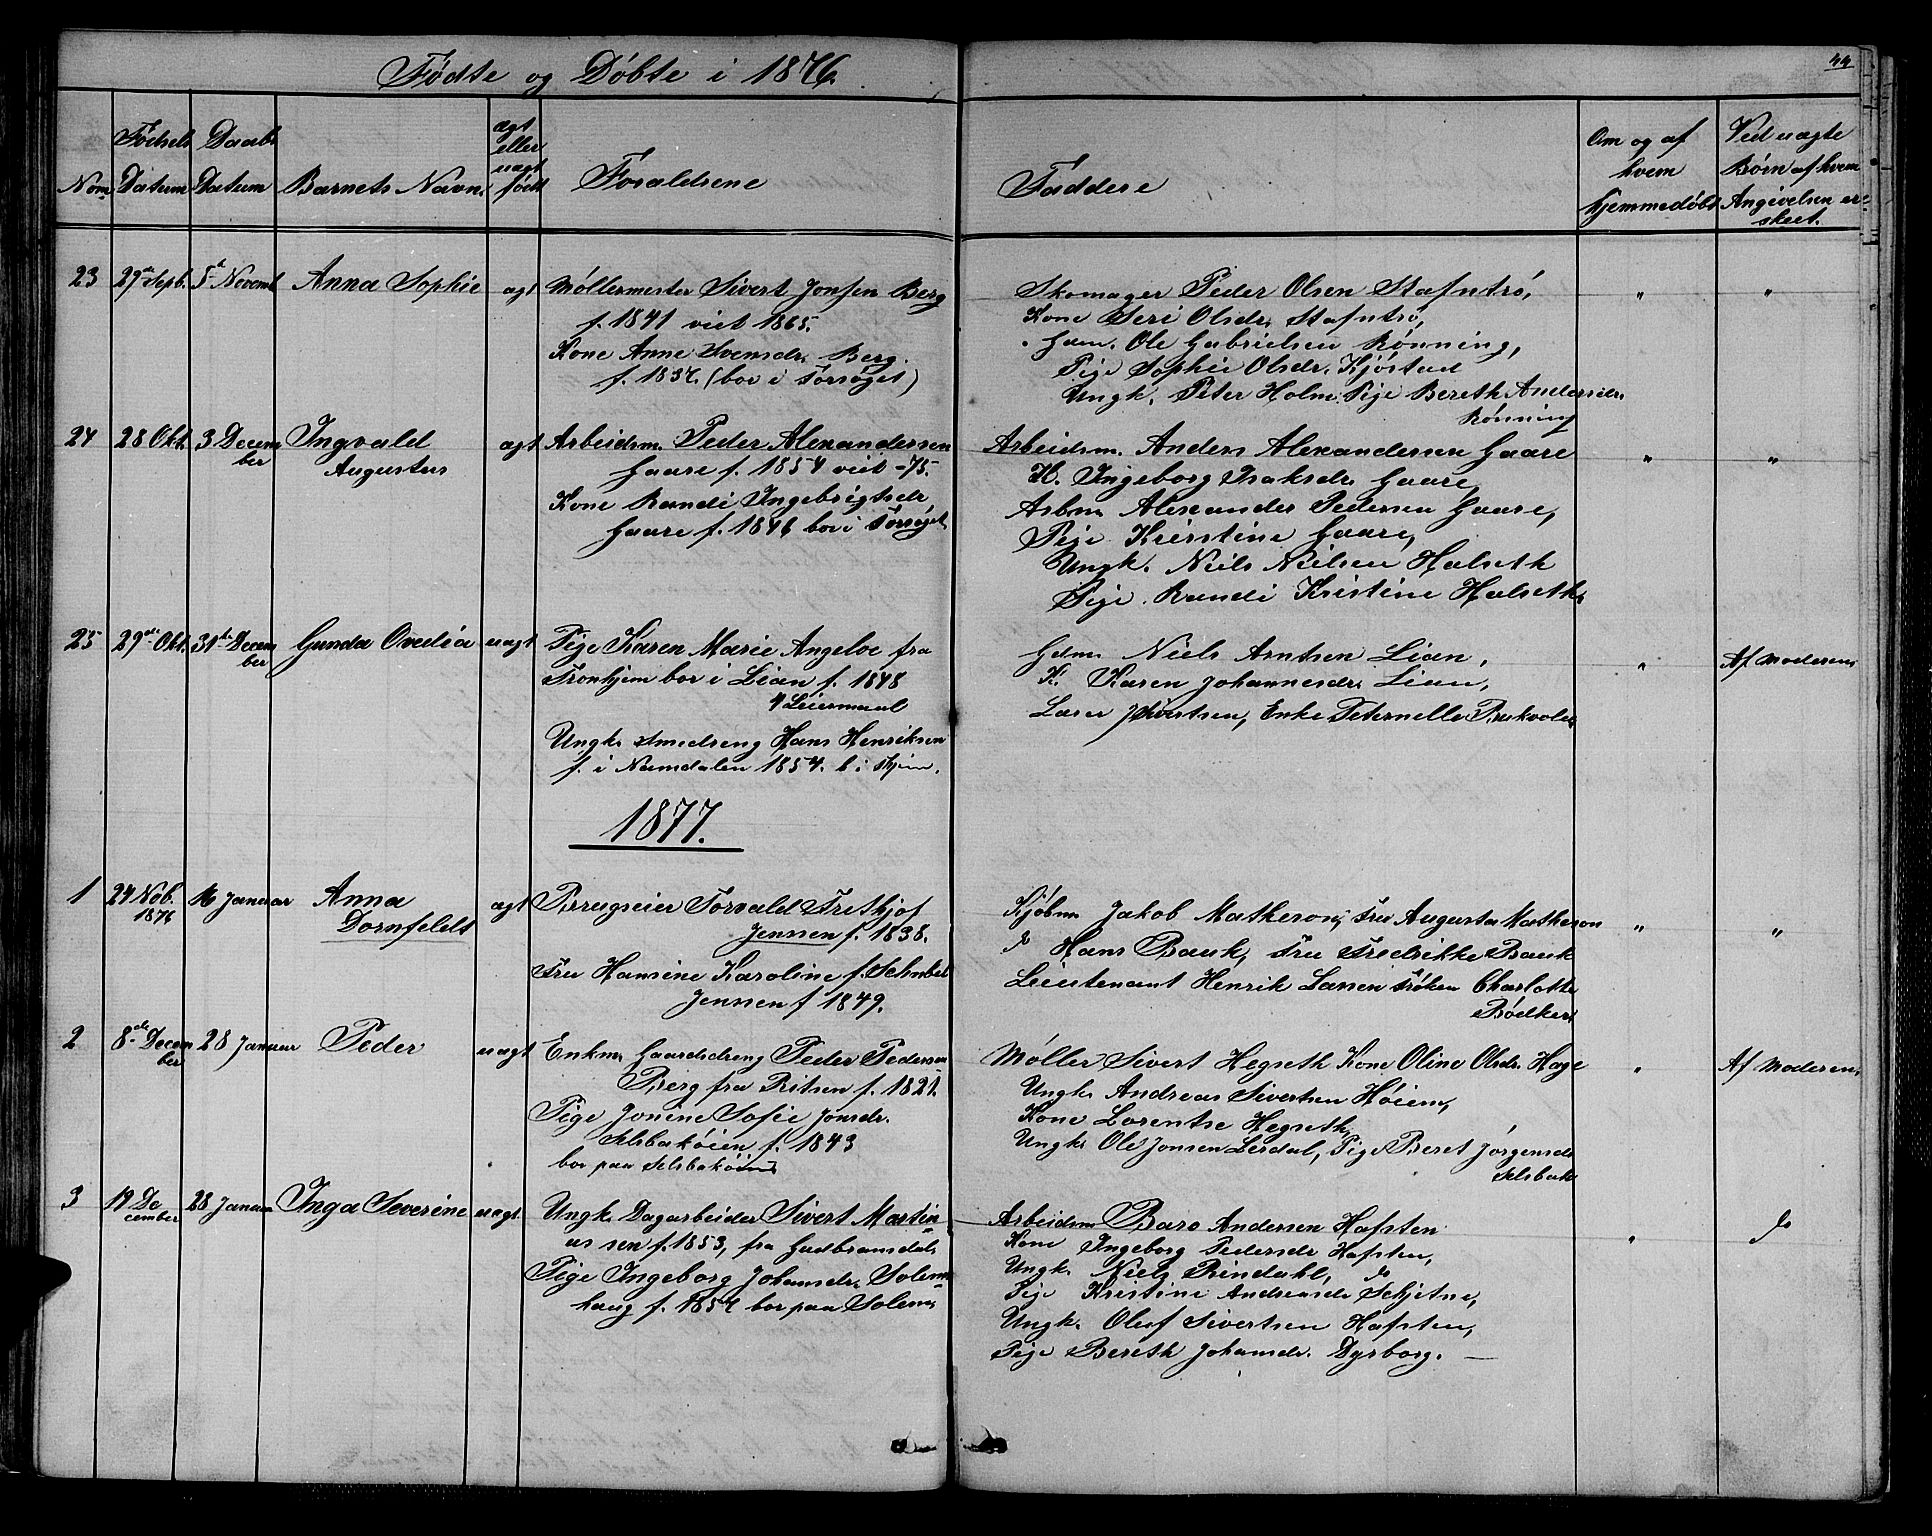 Fødte og Døbte i 1876.
44
Nom. Fødsels Datum Daabs Datum Barnets Navn ægt eller uægt født Forældrene Faddere Om og af hvem hjemmedøbt Ved uægte Børn af hvem Angivelsen er skeet.
23 29de Sepb. 5te Novemb Anna Sophie ægt Møllermester Sivert Jonsen Berg
f. 1841 viet 1865.
Kone Anne Svensdr. Berg.
f. 1837. (bor i Forsøget)
Skomager Peder Olsen Stafntrø,
Kone Seri Olsdr. Stafntrø,
Gdm. Ole Gabrielsen Rønning,
Pige Sophie Olsdr. Kjøstad
Ungk. Peter Holm Pige Bereth Andersdr.
Rønning
" "
24 28 Okt. 3 Decem
ber
Ingvald
Augustus
ægt Arbeidsm. Peder Alexandersen
Gaare f. 1854 viet -75.
Kone Randi Ingebrigtsdr
Gaare f. 1846 bor i Forsøget
Arbeidsm. Anders Alexandersen Gaare
K. Ingeborg Isaksdr. Gaare,
Arbm Alexander Pedersen Gaare,
Pige Kristine Gaare,
Ungk. Niels Nielsen Halseth
Pige Randi Kristine Halseth
" "
25 29de Okt. 31te Decem
ber
Gunda Ovedia uægt Pige Karen Marie Angeloe fra
Tronhjem bor i Lian f. 1848
4 Leiermaal
Ungk. Smedsveng Hans Henriksen
f. i Namdalen 1854. b i Thjem.
Gdm Niels Arntsen Lian,
K. Karen Johannesdr. Lian,
Lærer Sivertsen, Enke Peternelle
" Af Moderen
1877.
1 24 Nob.
1876
16 Januar Anna
Dornfeldt
ægt Brugseier Torvald Fritkjof
Jenssen f. 1838.
Fru Hansine Karoline f. Schnbel
Jenssen f 1849.
Kjøbm Jakob Matheson, Fru Augusta Matheson
do Hans Bauk, Fru Fredrikke Bauk
Lieutenant Henrik Larsen Frøken Charlotte
Bødker
" "
2 8de Decem
ber
28 Januar Peder uægt Enkm. Gaardsdreng Peder Pedersen
Berg fra Ritsen f. 1821.
Pige Jonine Sofie Jonsdr.
Selsbakøien f. 1843
bor paa Selsbakøien
Møller Sivert Hegseth Kone Oline Olsdr. Hage
Ungk. Andreas Sivertsen Høiem,
Kone Lorentse Hegseth,
Ungk. Ole Jonsen Leirdal, Pige Beret Jørgensdr
Selsbak
" Af Moderen
3 19 De
cember
28 Januar Inga Severine uægt Ungk. Dagarbeider Sivert Martin
us sen f. 1853, fra Gudbransdal,
Pige Ingeborg Johansdr. Solem
haug f. 1857 bor paa Solem
Arbeidsm Baro Andersen Hafsten
Kone Ingeborg Pedersdr Hafsten,
Ungk. Niels Rindahl, do
Pige Kristine Andreasdr Schjetne,
Ungk. Oluf Sivertsen Hafsten,
Pige Bereth Johansdr. Dyrborg.
" do